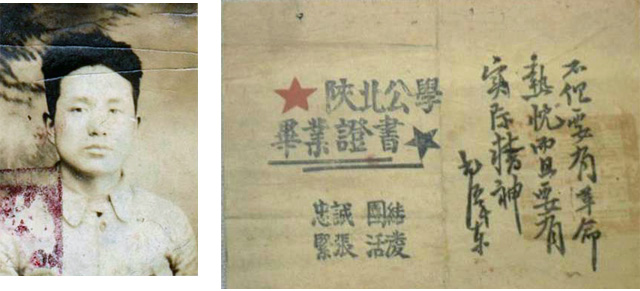 陝北公學
畢業證書
忠誠 團結
緊張 活潑
不但要有革命
熱忱而且要有
實际精神
毛泽东